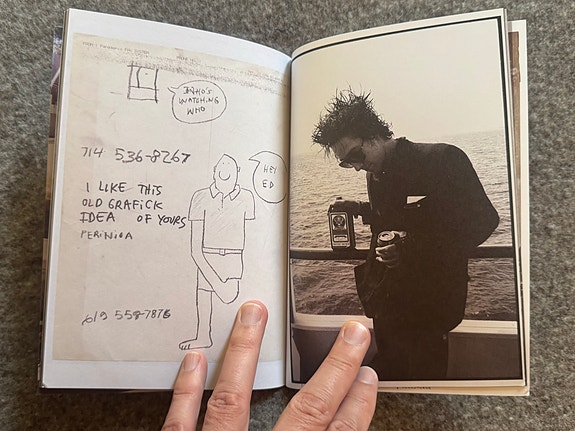 WHO'S
WATCHING
WHO
714 536-8267
HEY
ED
I LIKE THIS
OLD GRAFICK
IDEA OF YOURS
619 558-7876